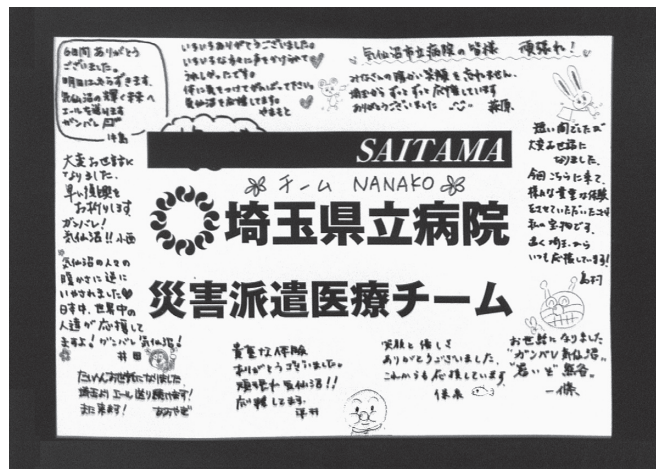 6日間 ありがとう
ございました。
明日はかならずきます。
気仙沼の輝く未来へ
エールを送ります
ガンバレ
いろいろありがとうございました。
いろいろな方々に声をかけられて
うれしかったです。
体に気をつけてがんばって下さい。
気仙沼を応援してます。
やまもと
気仙沼市立病院の皆様 頑張れ!
みなさんの暖かい笑顔を忘れません。
埼玉から ずっと ずっと 応援しています
ありがとうございました
萩原
SAITAMA
チーム NANAKO
埼玉県立病院
災害派遣医療チーム
大変お世話に
なりました。
早い復興を
お祈りします
ガンバレ!
気仙沼!! 小西
気仙沼の人々の
暖かさに逆に
いやされました
日本中、世界中の
人達が応援して
ますよ! ガンバレ 気仙沼!
井田
たいへんお世話になりました
埼玉より エール送り続けます!
また来ます! あおやぎ
貴重な体験
ありがとうございました。
頑張れ気仙沼!!
応援してます。
平井
笑顔と優しさ
ありがとうございました。
これからも応援しています
短い間でしたが
大変お世話に
なりました。
今回こちらに来て、
様々な貴重な体験
をさせていただいたことは
私の宝物です。
遠く埼玉から
いつも応援しています!
島村
お世話になりました
"ガンバレ気仙沼"
一條